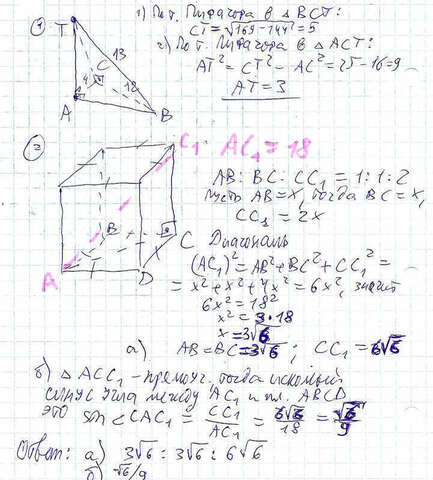 ① 1) По т. Пифагора в △ BCT:
CT = √169-144 = 5
2) По т. Пифагора в △ ACT:
AT² = CT² - AC² = 25-16=9
AT = 3
T
13
C
4
12
A
B
② C₁ AC₁ = 18
AB : BC : CC₁ = 1:1:2
пусть AB = x, тогда BC = x,
CC₁ = 2x
B
C
A
D
Диагональ
(AC₁)² = AB² + BC² + CC₁² =
= x² + x² + 4x² = 6x², значит
6x² = 18²
x² = 3·18
x = 3√6
а) AB = BC = 3√6 ; CC₁ = 6√6
б) △ ACC₁ - прямоуг. тогда искомый
синус угла между AC₁ и пл. ABCD
это sin < CAC₁ = CC₁/AC₁ = 6√6/18 = √6/9
Ответ: а) 3√6 : 3√6 : 6√6
б) √6/9